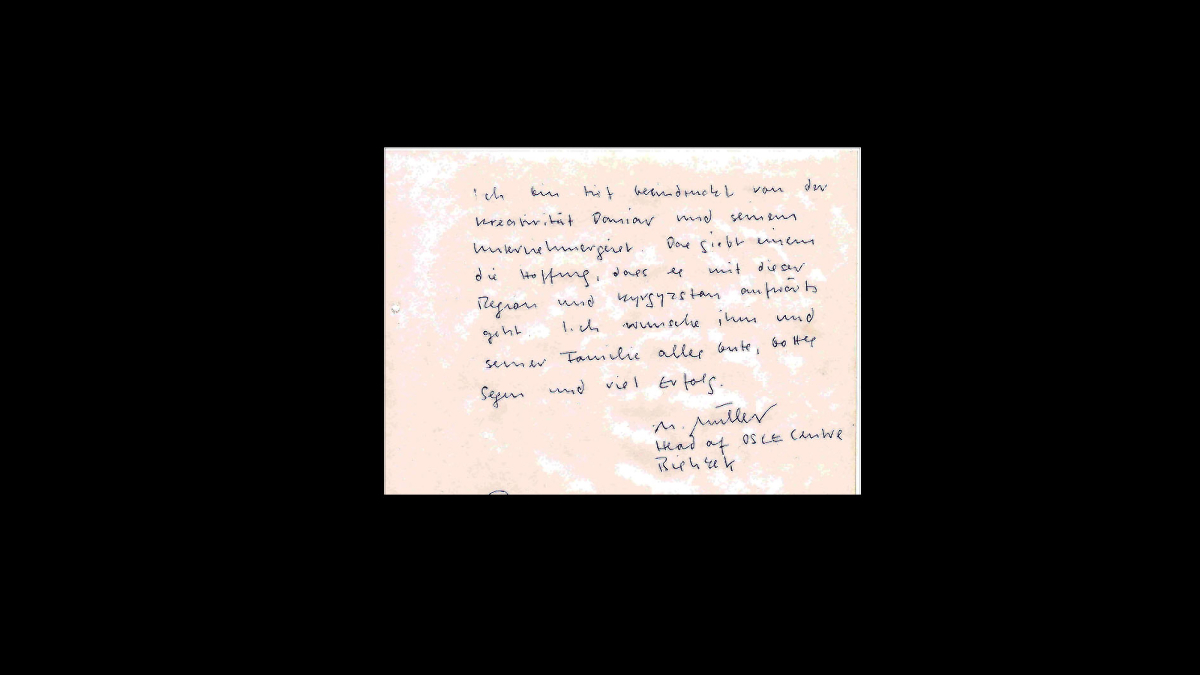 Ich bin tief beeindruckt von der
Kreativität Daniar und seinem
Unternehmergeist. Das giebt einem
die Hoffnung, dass es mit dieser
Region und Kyrgyzstan aufwärts
geht. Ich wünsche ihm und
seiner Familie alles Gute, Gottes
Segen und viel Erfolg.
M. Müller
Head of OSCE Centre
Bishkek